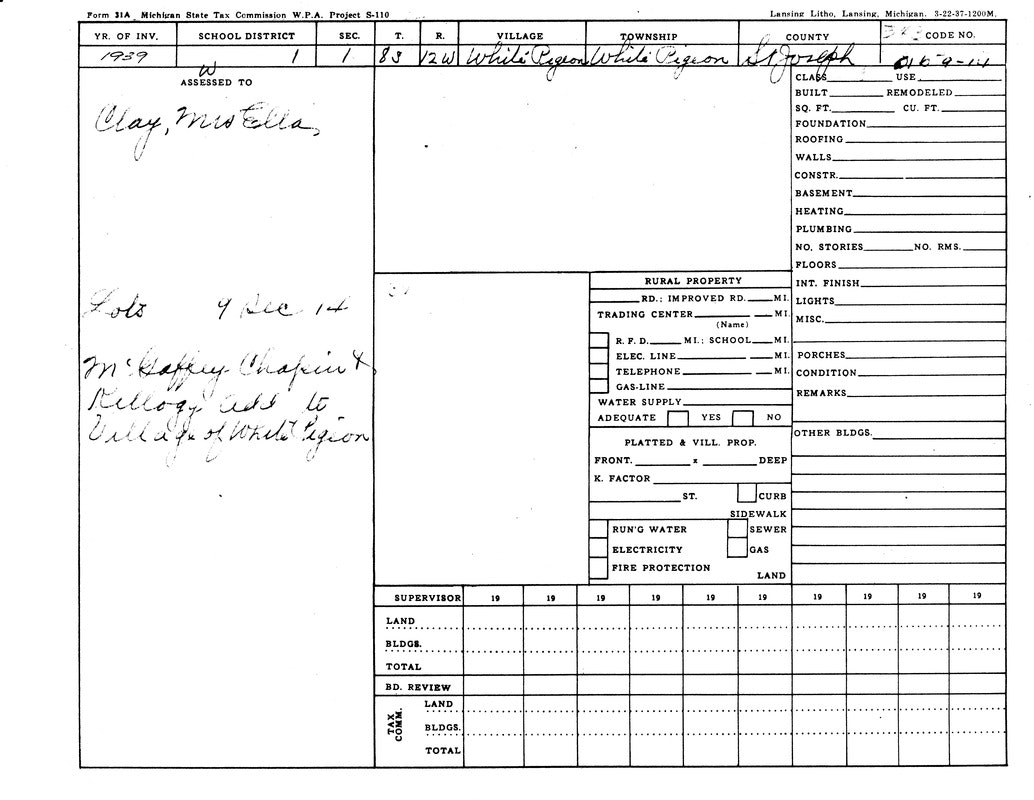 Form 31A Michigan State Tax Commission W.P.A. Project S-110 Lansing Litho, Lansing, Michigan. 3-22-37-1200M.
YR. OF INV. SCHOOL DISTRICT SEC. T. R. VILLAGE TOWNSHIP COUNTY CODE NO.
1939 1 1 8S 12W White Pigeon White Pigeon St Joseph
W
ASSESSED TO
Clay, Mrs Ella,
Lots 9 Sec 14
McGaffey Chapin &
Kellogg add to
Village of White Pigeon
CLASS USE
BUILT REMODELED
SQ. FT. CU. FT.
FOUNDATION
ROOFING
WALLS
CONSTR.
BASEMENT
HEATING
PLUMBING
NO. STORIES NO. RMS.
FLOORS
INT. FINISH
LIGHTS
MISC.
PORCHES
CONDITION
REMARKS
OTHER BLDGS.
RURAL PROPERTY
RD.; IMPROVED RD. MI.
TRADING CENTER MI.
(Name)
R. F. D. MI.; SCHOOL MI.
ELEC. LINE MI.
TELEPHONE MI.
GAS-LINE
WATER SUPPLY
ADEQUATE YES NO
PLATTED & VILL. PROP.
FRONT. x DEEP
K. FACTOR
ST. CURB
SIDEWALK
RUN'G WATER SEWER
ELECTRICITY GAS
FIRE PROTECTION
LAND
SUPERVISOR 19 19 19 19 19 19 19 19 19 19
LAND
BLDGS.
TOTAL
BD. REVIEW
TAX COMM.
LAND
BLDGS.
TOTAL